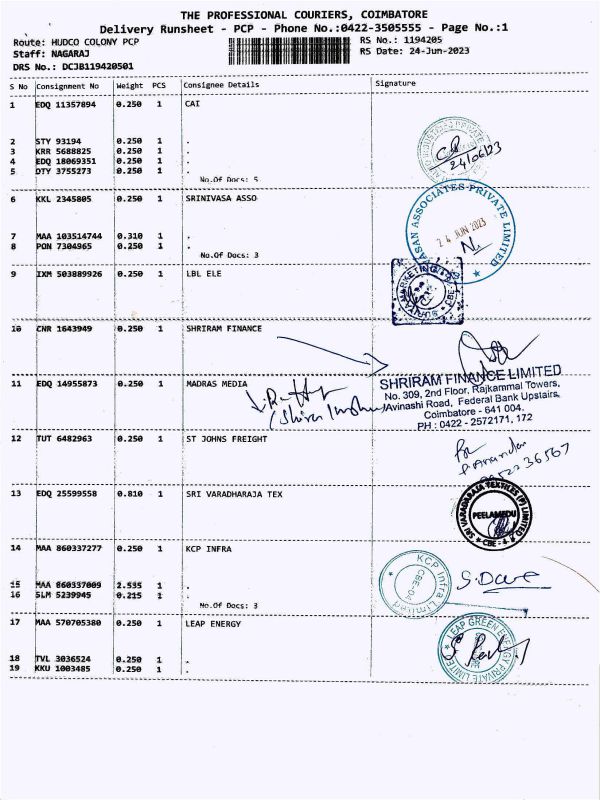 THE PROFESSIONAL COURIERS, COIMBATORE
Delivery Runsheet - PCP - Phone No.:0422-3505555 - Page No.:1
Route: HUDCO COLONY PCP RS No.: 1194205
Staff: NAGARAJ RS Date: 24-Jun-2023
DRS No.: DCJB119420501
S No Consignment No Weight PCS Consignee Details Signature
1 EDQ 11357894 0.250 1 CAI
2 STY 93194 0.250 1 .
3 KRR 5688825 0.250 1 .
4 EDQ 18069351 0.250 1 .
5 DTY 3755273 0.250 1 .
No.Of Docs: 5
24/06/23
6 KKL 2345805 0.250 1 SRINIVASA ASSO
7 MAA 103514744 0.310 1 .
8 PON 7304965 0.250 1 .
No.Of Docs: 3
ASSOCIATES PRIVATE LIMITED
24 JUN 2023
9 IXM 503889926 0.250 1 LBL ELE
MARKETING
CBE
10 CNR 1643949 0.250 1 SHRIRAM FINANCE
SHRIRAM FINANCE LIMITED
No. 309, 2nd Floor, Rajkammal Towers,
Avinashi Road, Federal Bank Upstairs,
Coimbatore - 641 004.
PH : 0422 - 2572171, 172
11 EDQ 14955873 0.250 1 MADRAS MEDIA
12 TUT 6482963 0.250 1 ST JOHNS FREIGHT
13 EDQ 25599558 0.810 1 SRI VARADHARAJA TEX
SRI VARADARAJA TEXTILES (P) LIMITED
PEELAMEDU
CBE - 4
14 MAA 860337277 0.250 1 KCP INFRA
15 MAA 860337009 2.535 1 .
16 SLM 5239945 0.215 1 .
No.Of Docs: 3
KCP Infra Limited
CBE-04
17 MAA 570705380 0.250 1 LEAP ENERGY
18 TVL 3036524 0.250 1 .
19 KKU 1003485 0.250 1 .
LEAP GREEN ENERGY PRIVATE LIMITED